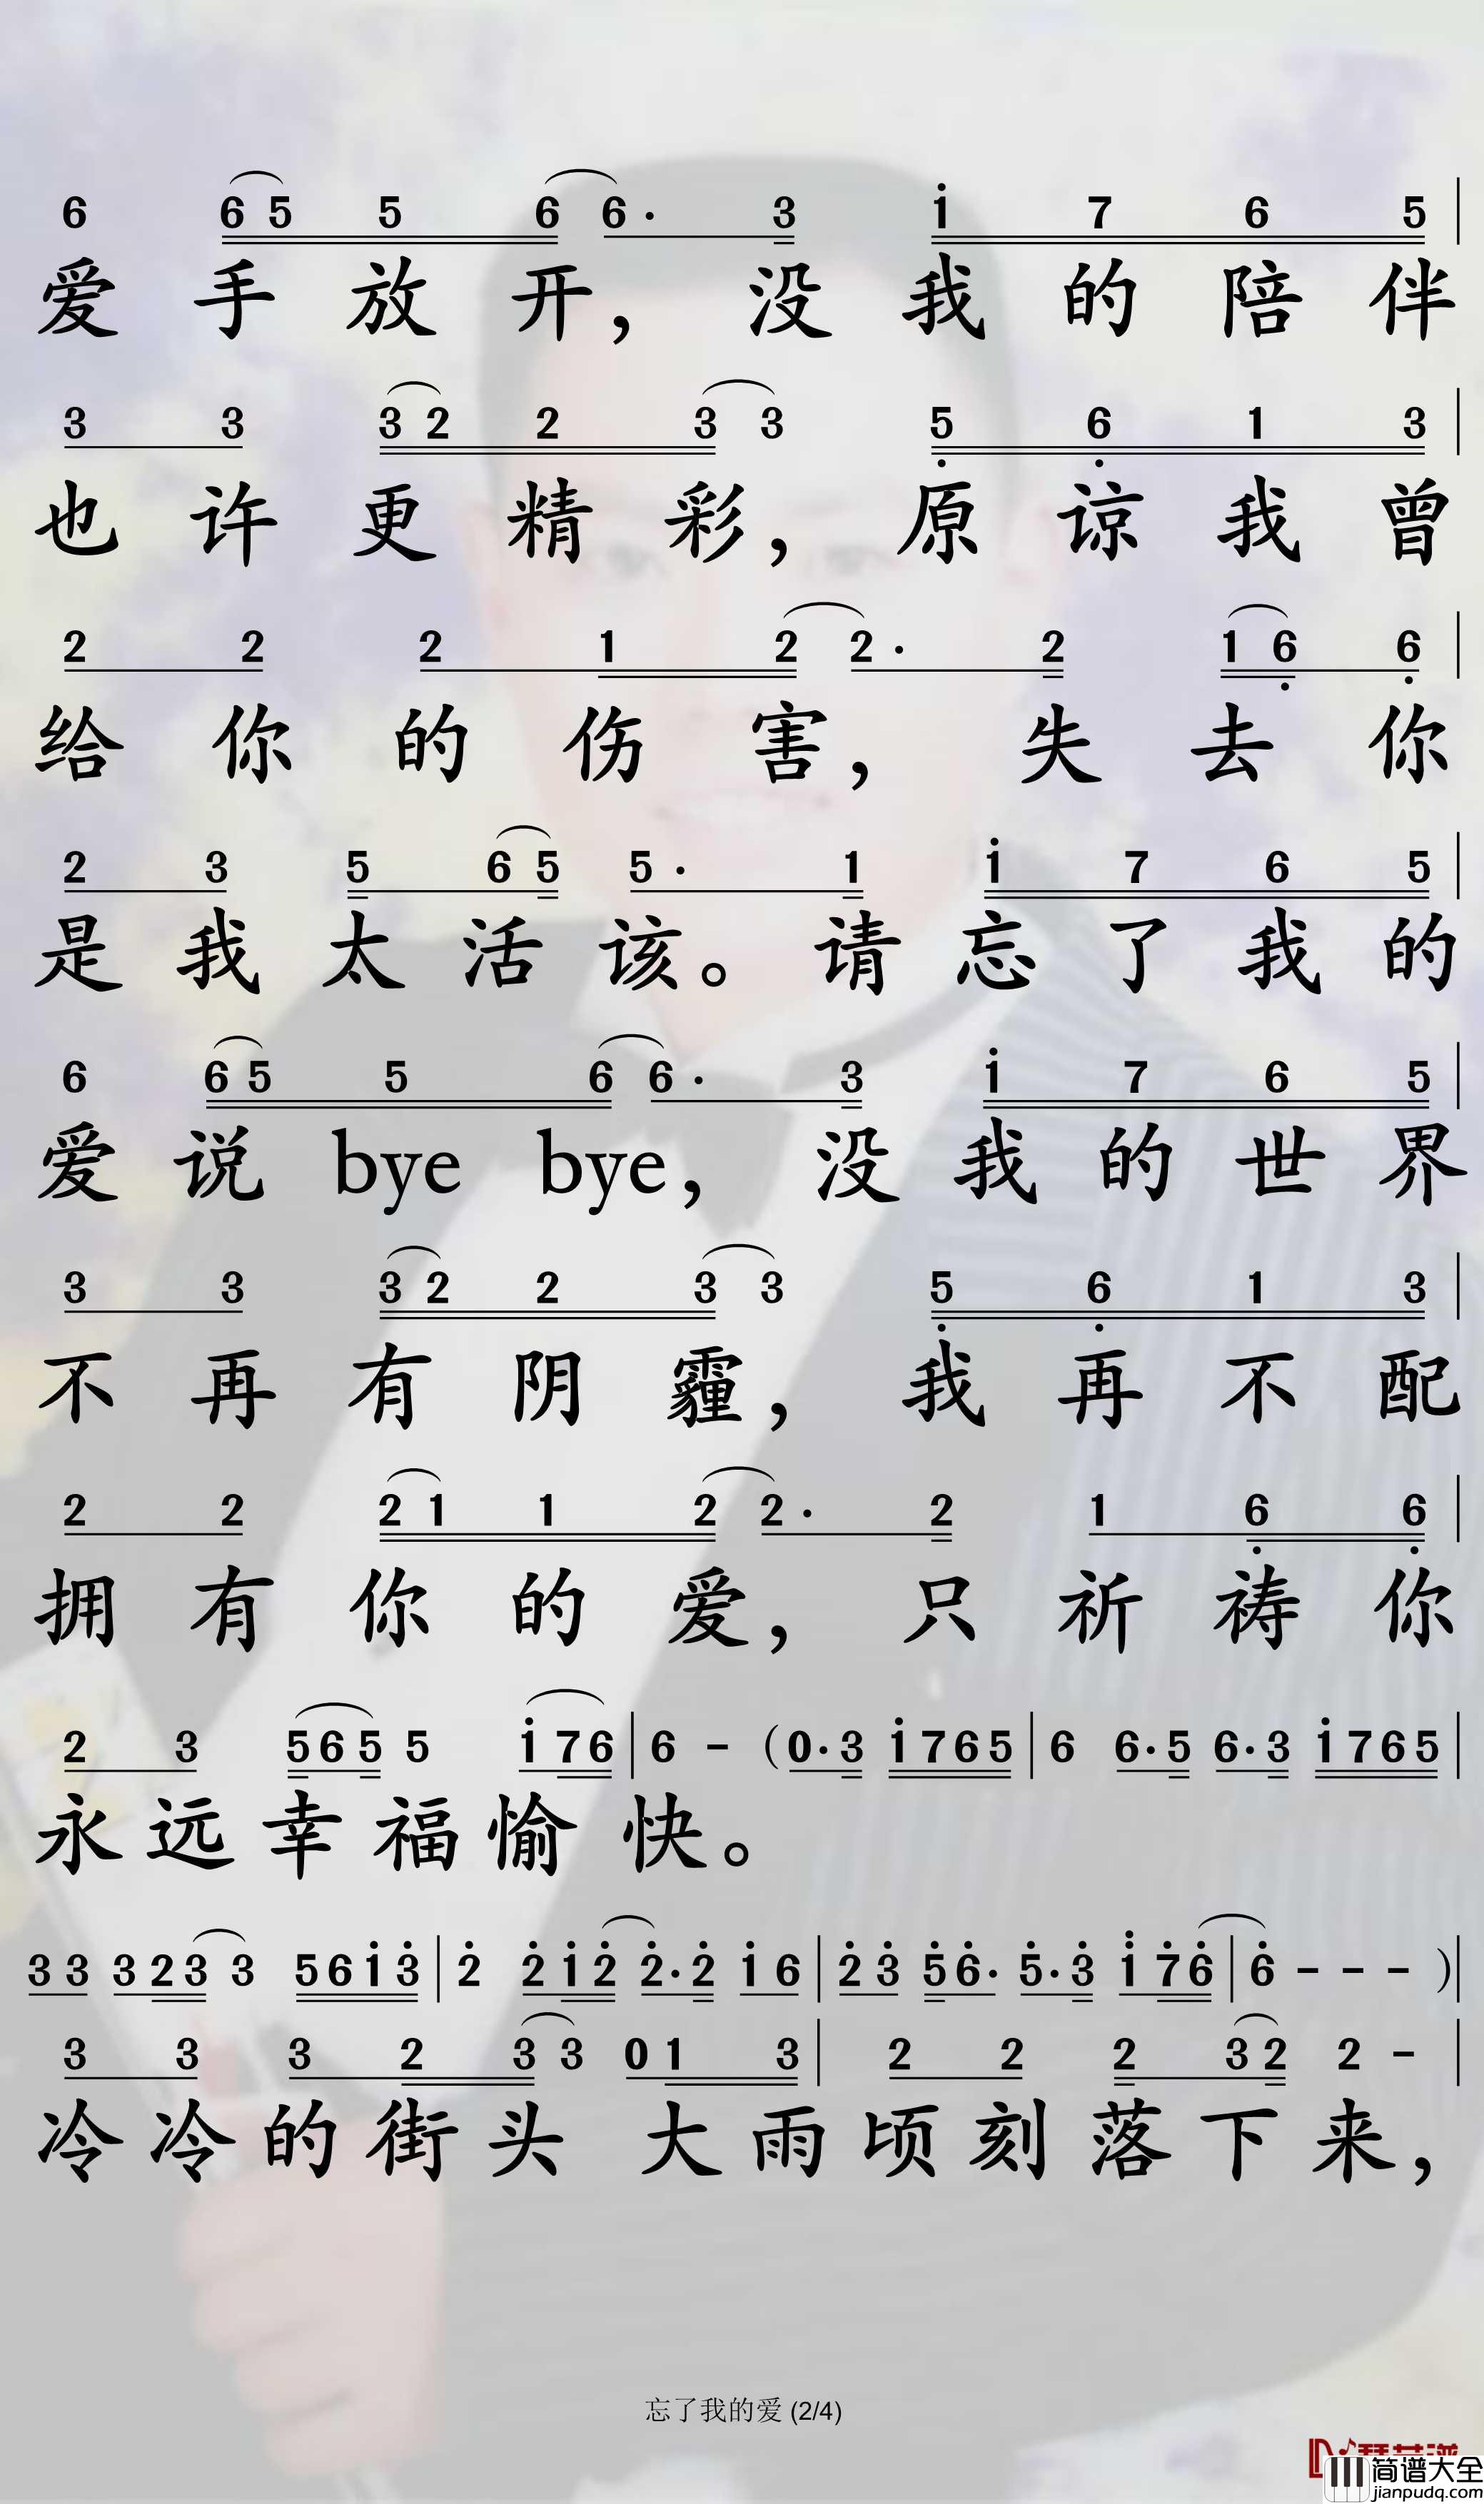 6 6 5 5 6 6· 3 i 7 6 5 |
爱 手 放 开， 没 我 的 陪 伴
3 3 3 2 2 3 3 5̣ 6̣ 1 3 |
也 许 更 精 彩， 原 谅 我 曾
2 2 2 1 2 2· 2 1 6̣ 6̣ |
给 你 的 伤 害， 失 去 你
2 3 5 6 5 5· 1 i 7 6 5 |
是 我 太 活 该。 请 忘 了 我 的
6 6 5 5 6 6· 3 i 7 6 5 |
爱 说 bye bye， 没 我 的 世 界
3 3 3 2 2 3 3 5̣ 6̣ 1 3 |
不 再 有 阴 霾， 我 再 不 配
2 2 2 1 1 2 2· 2 1 6̣ 6̣ |
拥 有 你 的 爱， 只 祈 祷 你
2 3 5 6 5 5 i 7 6 | 6 - (0· 3 i 7 6 5 | 6 6· 5 6· 3 i 7 6 5 |
永 远 幸 福 愉 快。
3 3 3 2 3 3 5 6 i 3̇ | 2̇ 2̇ i 2̇ 2̇· 2̇ i 6 | 2̇ 3̇ 5̇ 6̇· 5̇· 3̇ 1̈ 7̇ 6̇ | 6̇ - - - ) |
3 3 3 2 3 3 0 1 3 | 2 2 2 3 2 2 - |
冷 冷 的 街 头 大 雨 顷 刻 落 下 来，
忘了我的爱 (2/4)
简谱大全
jianpudq.com